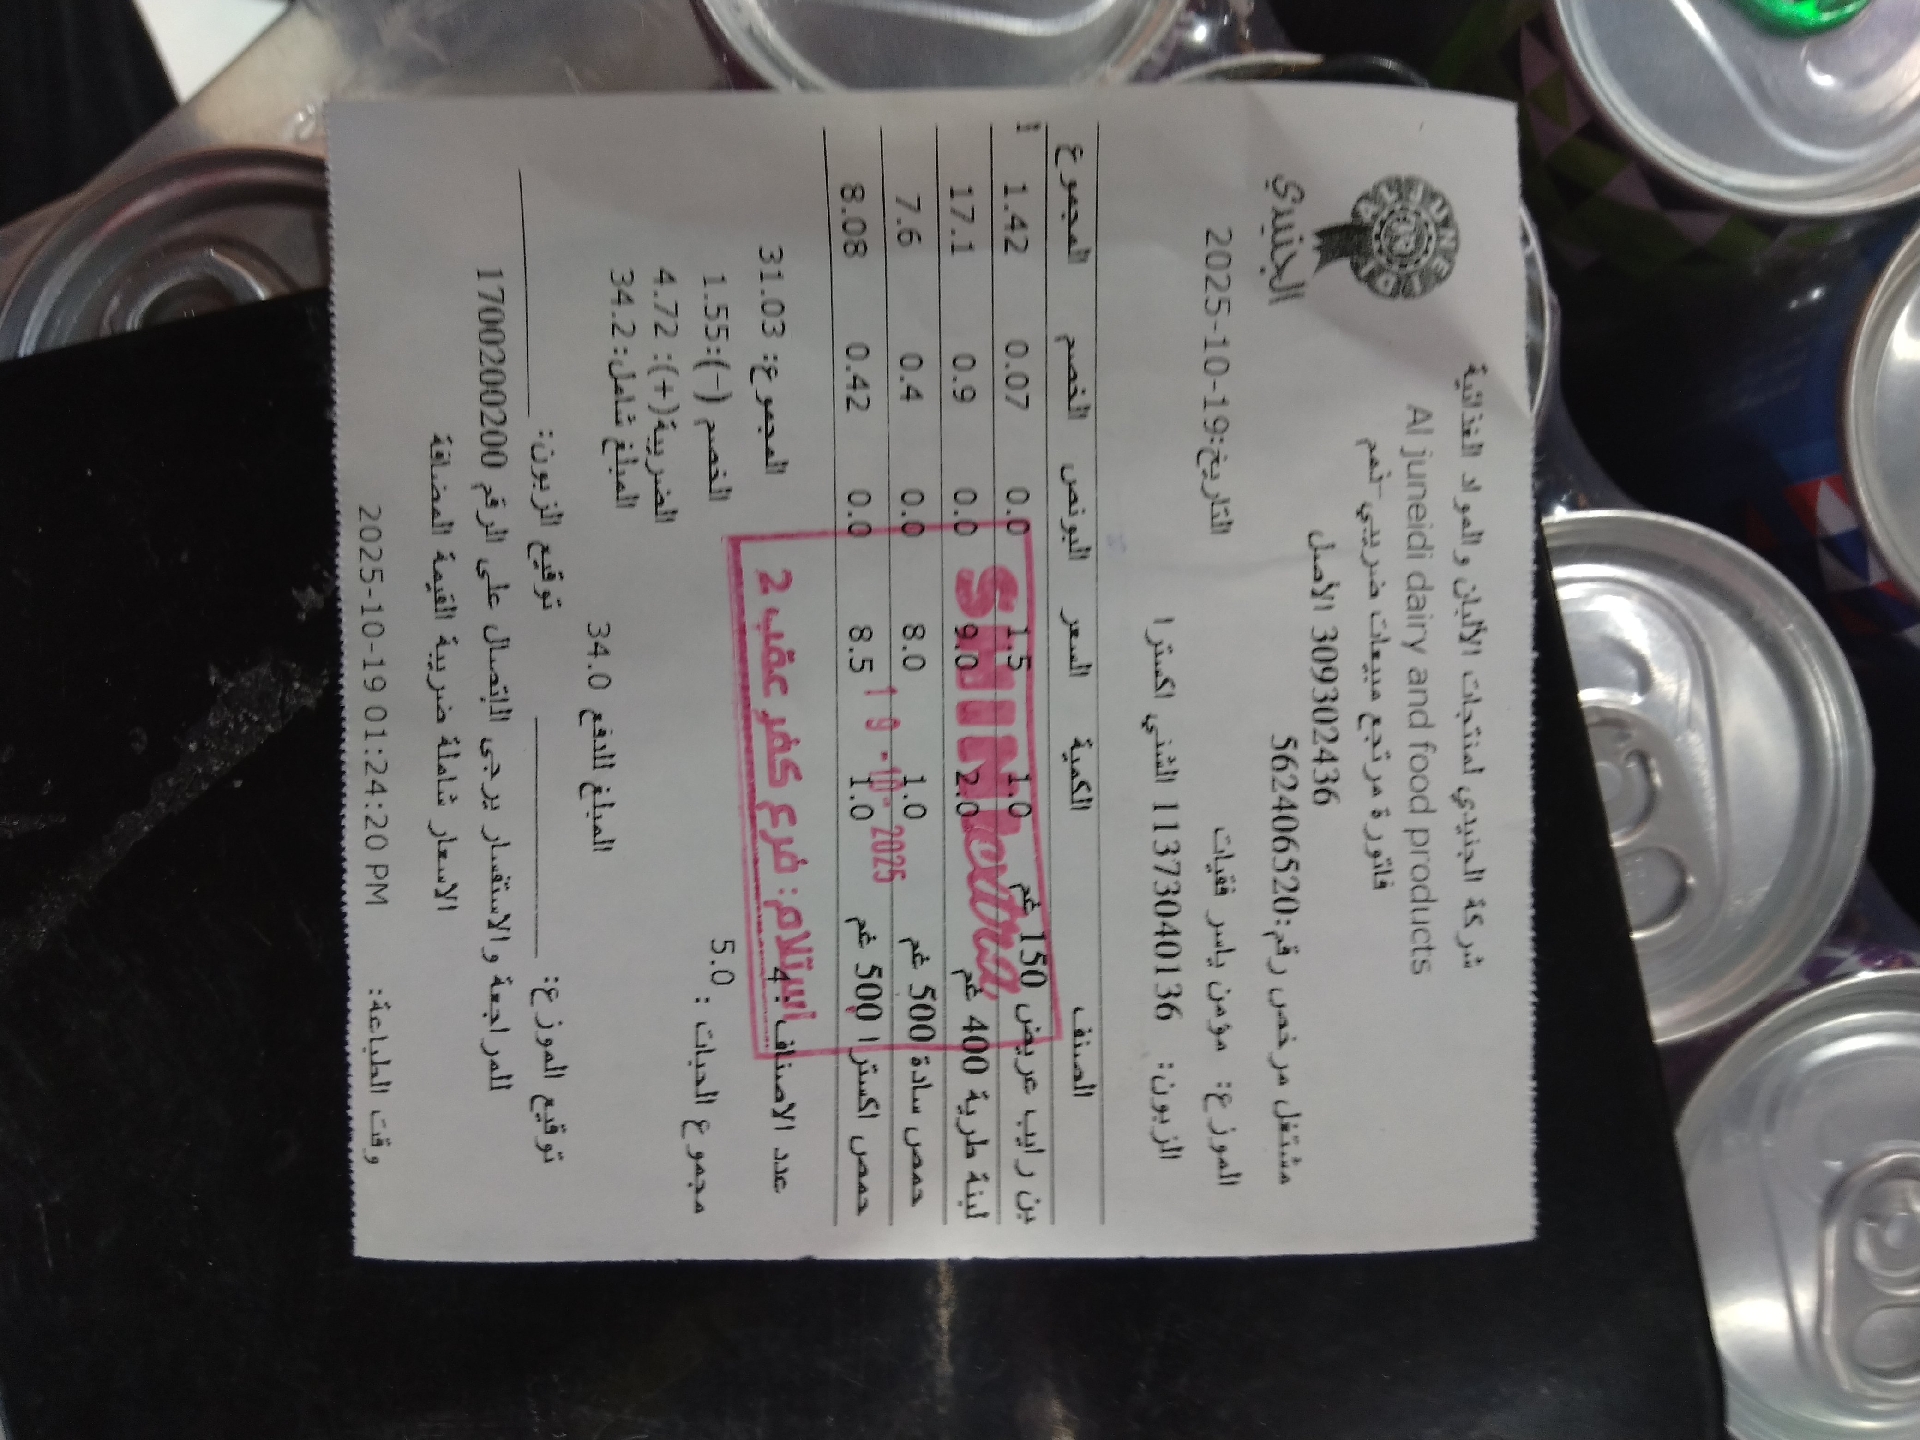 AL JUNEIDI
الجنيدي
شركة الجنيدي لمنتجات الألبان والمواد الغذائية
Al juneidi dairy and food products
فاتورة مرتجع مبيعات ضريبي-نمم
309302436 الأصل
مشتغل مرخص رقم:562406520
الموزع: مؤمن ياسر فقيات التاريخ:2025-10-19
الزبون: 11373040136 الشني اكسترا
الصنف الكمية السعر البونص الخصم المجموع
بن رايب عريض 150 غم 1.0 1.5 0.0 0.07 1.42
لبنة طرية 400 غم 2.0 9.0 0.0 0.9 17.1
حمص سادة 500 غم 1.0 8.0 0.0 0.4 7.6
حمص اكسترا 500 غم 1.0 8.5 0.0 0.42 8.08
SHINI extra
19 -10- 2025
استلام: فرع كفر عقب 2
عدد الاصناف: 4 المجموع: 31.03
مجموع الحبات: 5.0 الخصم (-):1.55
الضريبة(+): 4.72
المبلغ شامل: 34.2
المبلغ للدفع 34.0
توقيع الموزع: توقيع الزبون:
للمراجعة والاستفسار يرجى الاتصال على الرقم 1700200200
الاسعار شاملة ضريبة القيمة المضافة
وقت الطباعة: 2025-10-19 01:24:20 PM